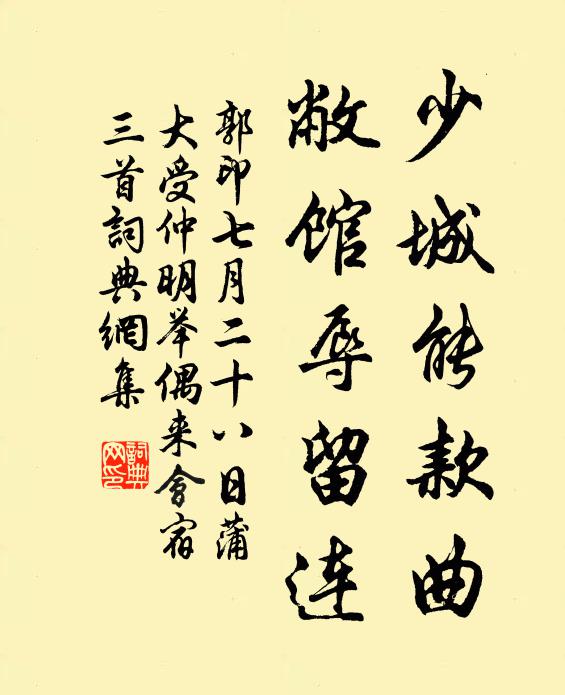 少城能款曲
敝馆辱留连
郭印七月二十八日蒲
大受仲明举偶来会宿
三首詞典網集
詞典
网印